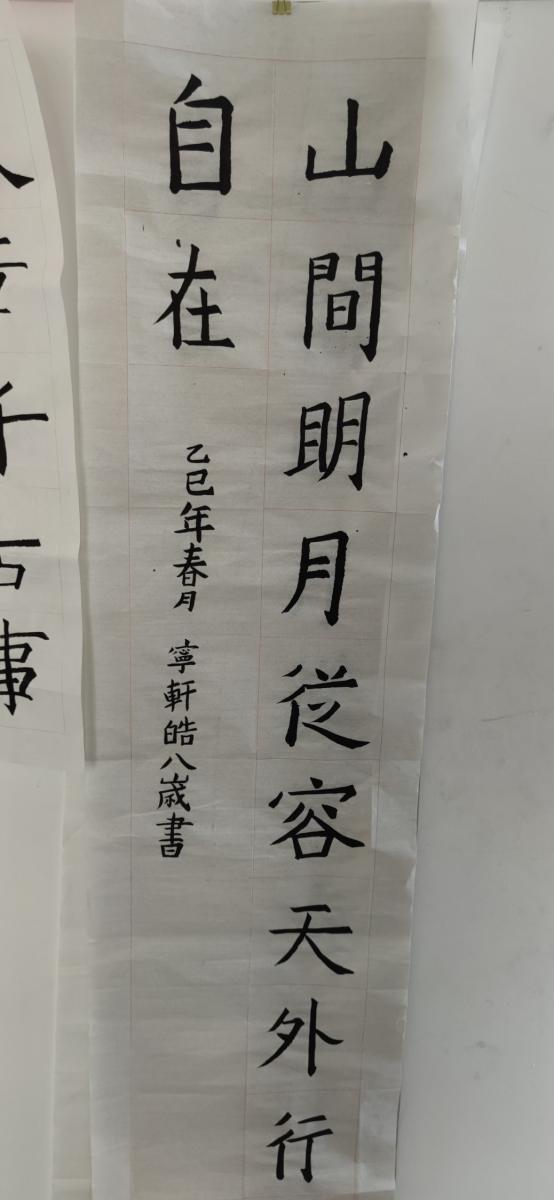 山間明月從容天外行
自在
乙巳年春月 寧軒皓八歳書
千
事